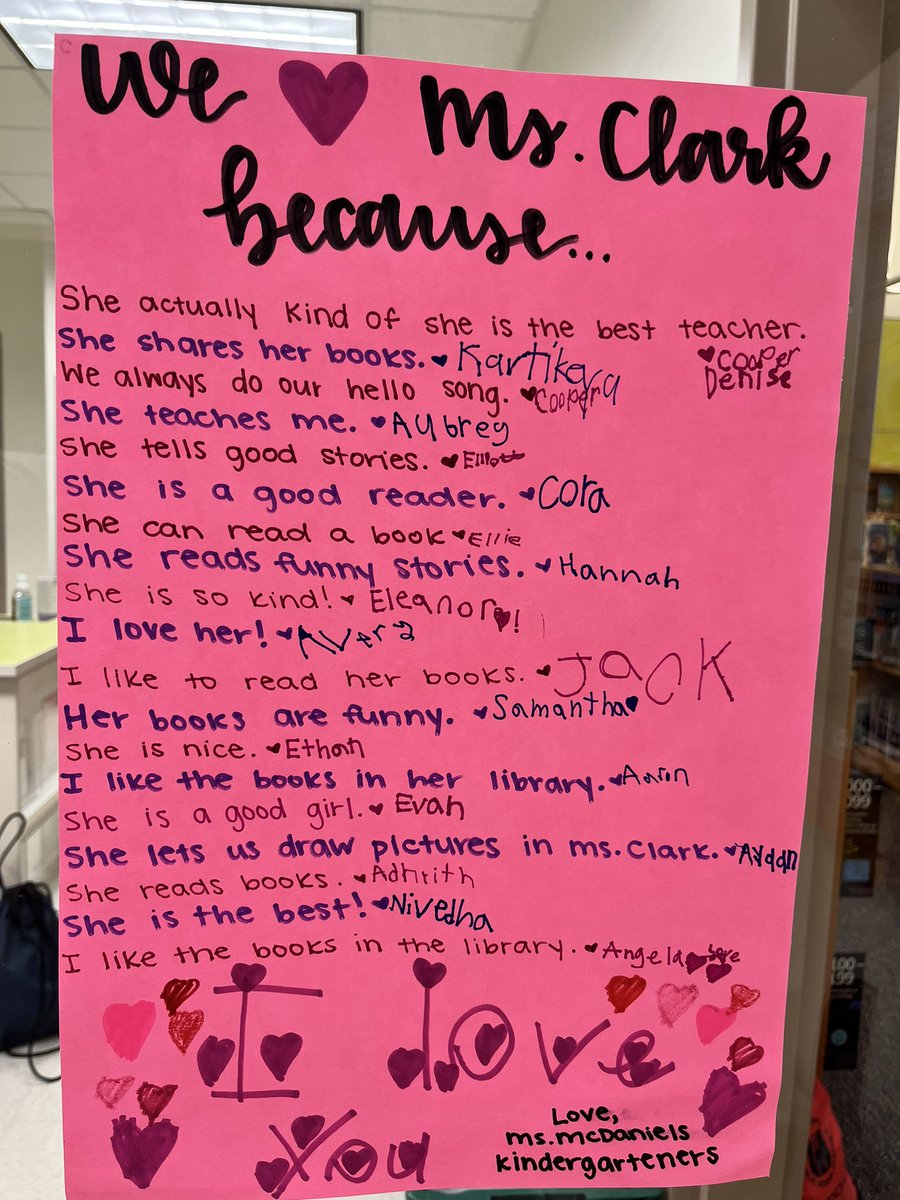 We Ms. Clark
because...
She actually kind of she is the best teacher.
Cooper
Denise
She shares her books. Kartikeya
We always do our hello song. Cooper
She teaches me. Aubrey
She tells good stories. Elliott
She is a good reader. Cora
She can read a book Ellie
She reads funny stories. Hannah
She is so kind! Eleanor !
I love her! Avera
I like to read her books. Jack
Her books are funny. Samantha
She is nice. Ethan
I like the books in her library. Aarin
She is a good girl. Evan
She lets us draw pictures in ms. Clark. Ayaan
She reads books. Adhrith
She is the best! Nivedha
I like the books in the library. Angela
I love
You
Love,
ms. mcDaniels
kindergarteners